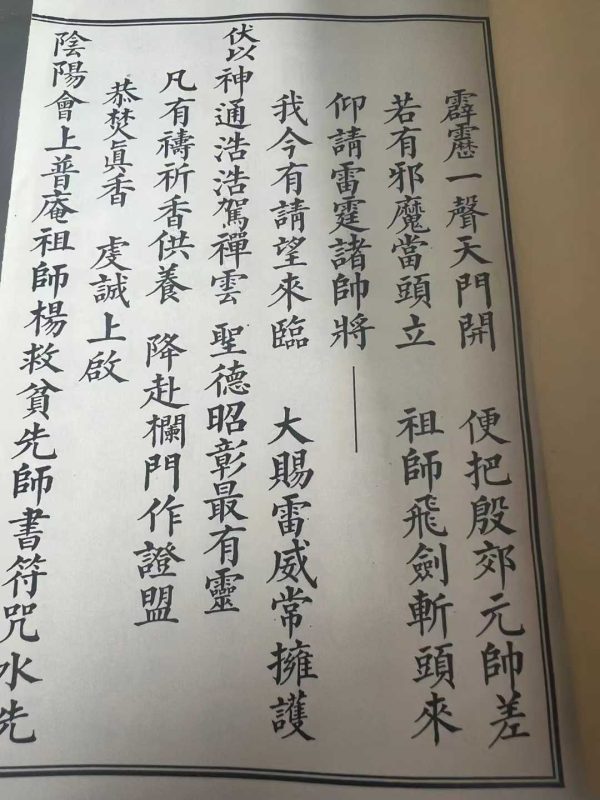 霹靂一聲天門開　便把殷郊元帥差
若有邪魔當頭立　祖師飛劍斬頭來
仰請雷霆諸帥將——
我今有請望來臨　大賜雷威常擁護
伏以神通浩浩駕禪雲　聖德昭彰最有靈
凡有禱祈香供養　降赴欄門作證盟
恭焚真香　虔誠上啟
陰陽會上普庵祖師楊救貧先師書符咒水先